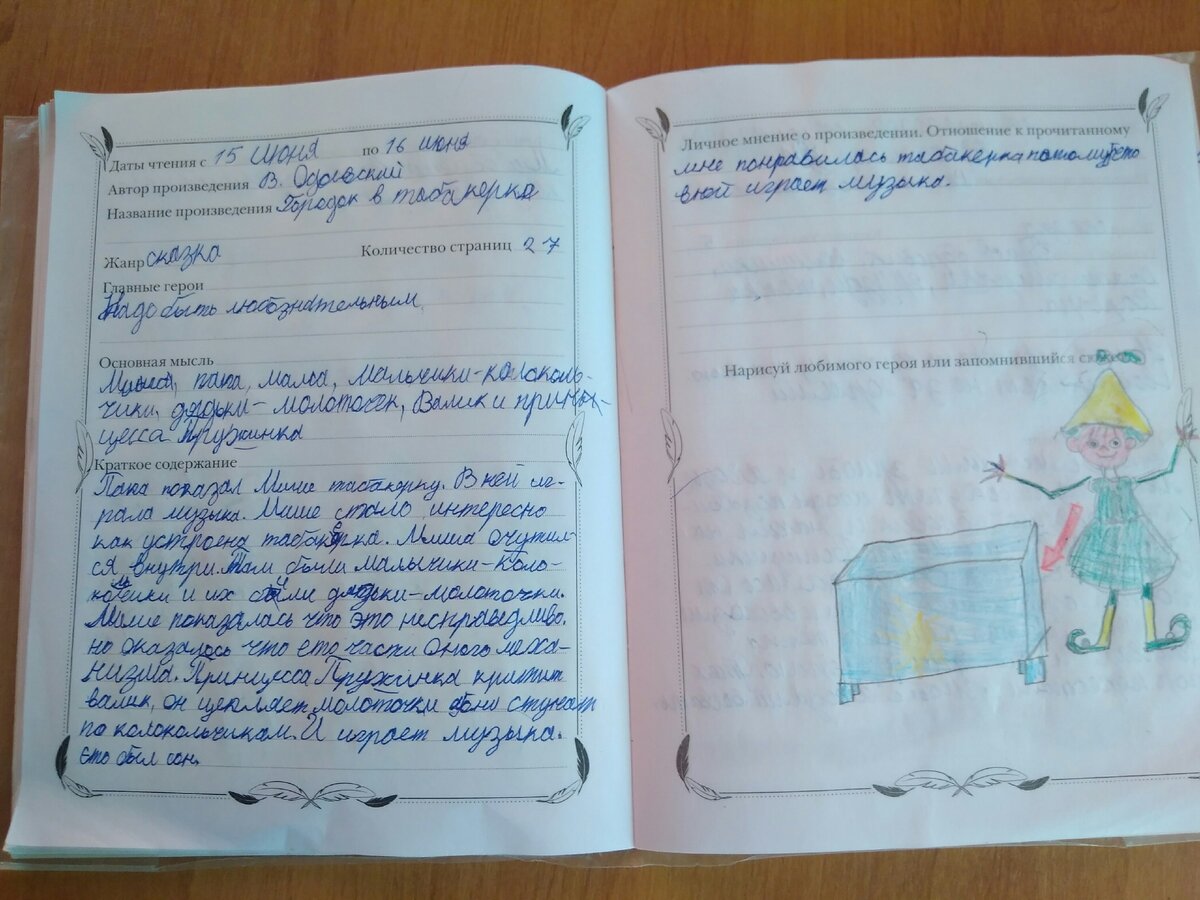 Даты чтения с 15 июня по 16 июня
Автор произведения В. Одоевский
Название произведения Городок в табакерке
Жанр сказка Количество страниц 27
Главные герои
Надо быть любознательным.
Основная мысль
Миша, папа, мама, мальчики-колоколь-
чики, дядьки-молоточек, Валик и прин-
цесса Пружинка
Краткое содержание
Папа показал Мише табакерку. В ней иг-
рала музыка. Мише стало интересно
как устроена табакерка. Миша очутил-
ся внутри. Там были мальчики-коло-
и их били дядьки-молоточки.
Мише показалась что это несправедливо.
но оказалось что ето части оного меха-
низма. Принцесса Пружинка крутит
валик, он цепляет молоточки они стучат
по колокольчикам. И играет музыка.
Ето был сон.
Личное мнение о произведении. Отношение к прочитанному
мне понравилась табакерка потомучто
вней играет музыка.
Нарисуй любимого героя или запомнившийся сюжет